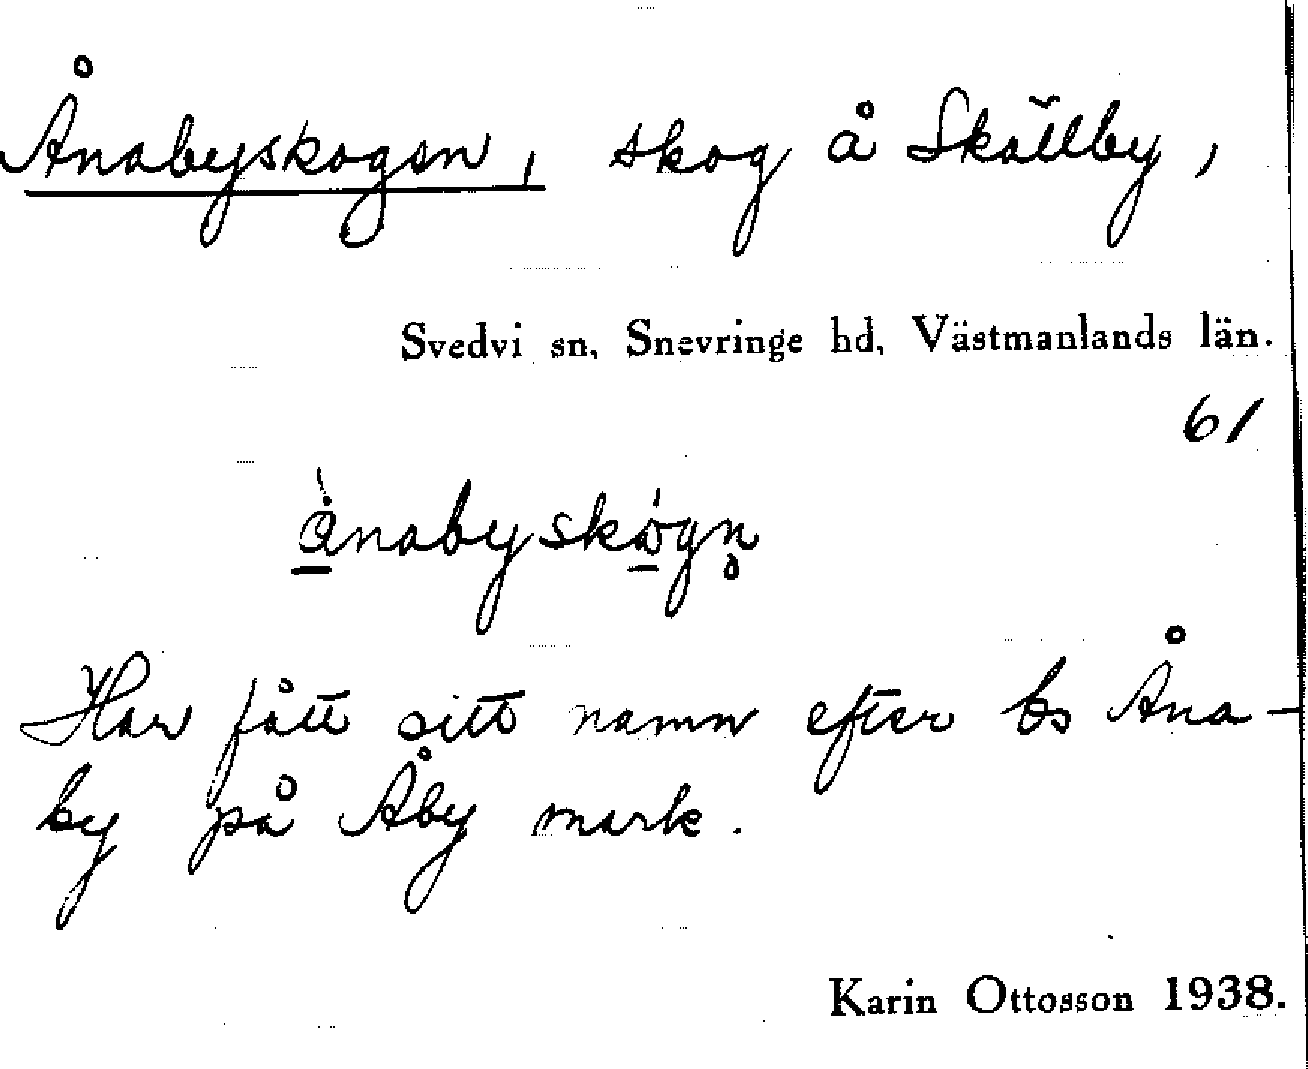 Ånabyskogen, skog å Skällby,
Svedvi sn, Snevringe hd, Västmanlands län.
61
ånabyskògn̥
Har fått sitt namn efter bs Åna-
by på Åby mark.
Karin Ottosson 1938.